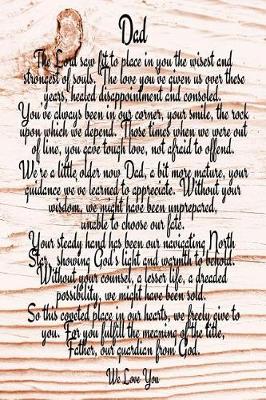 Dad
The Lord saw fit to place in you the wisest and
strongest of souls. The love you've given us over these
years, healed disappointment and consoled.
You've always been in our corner, your smile, the rock
upon which we depend. Those times when we were out
of line, you gave tough love, not afraid to offend.
We're a little older now Dad, a bit more mature, your
guidance we've learned to appreciate. Without your
wisdom, we might have been unprepared,
unable to choose our fate.
Your steady hand has been our navigating North
Star, showing God's light and warmth to behold.
Without your counsel, a lesser life, a dreaded
possibility, we might have been sold.
So this coveted place in our hearts, we freely give to
you. For you fulfill the meaning of the title,
Father, our guardian from God.
We Love You